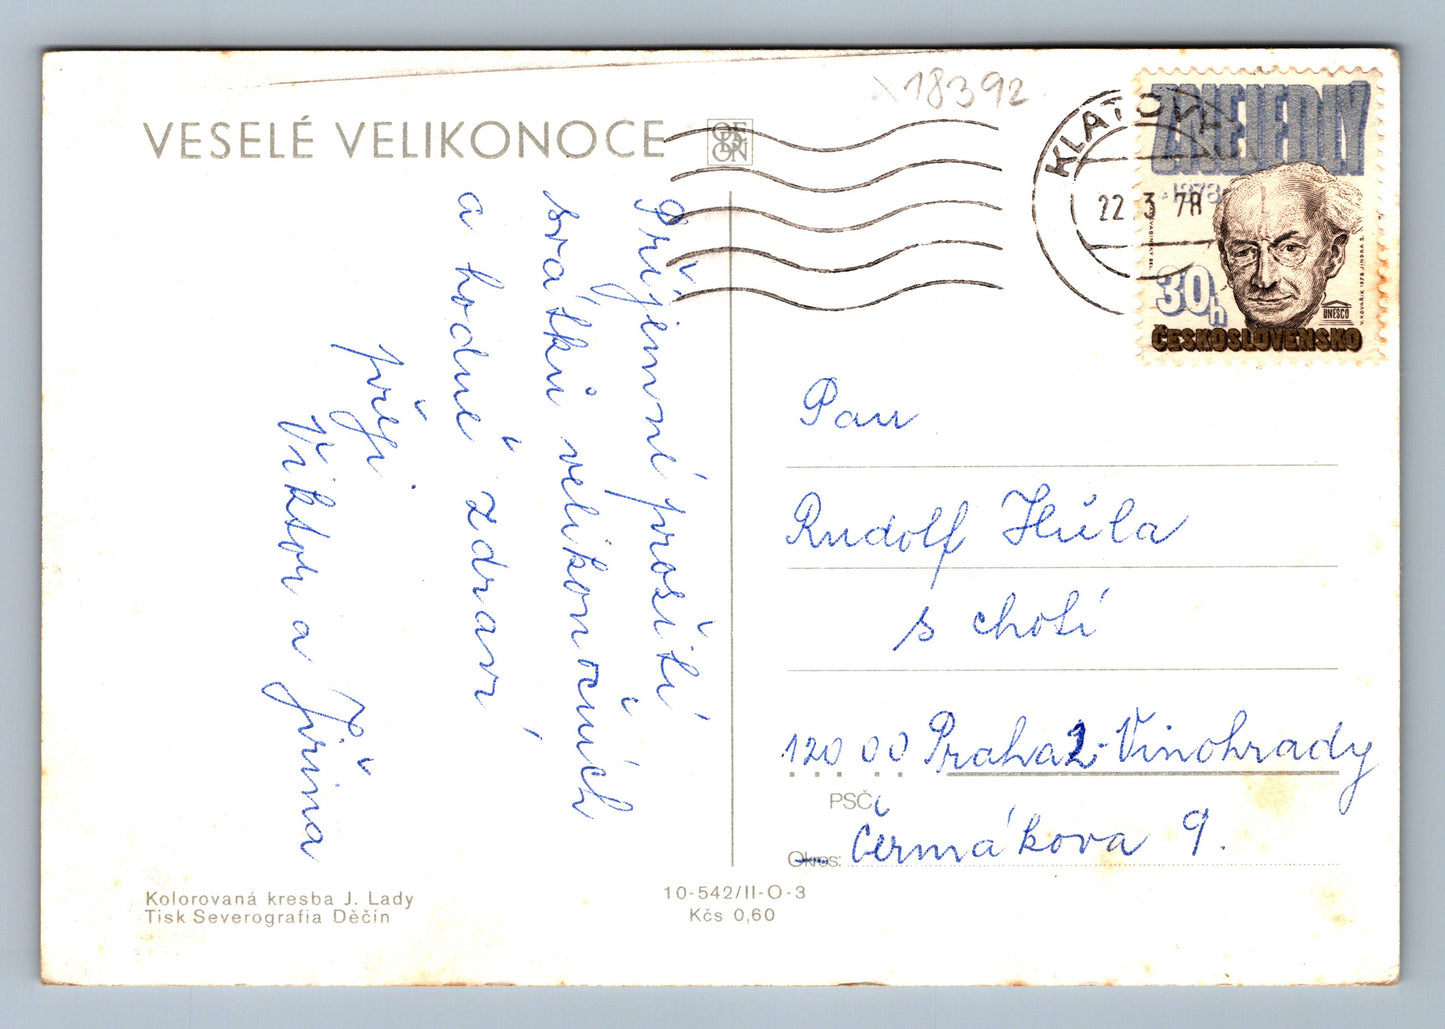 x18392
VESELÉ VELIKONOCE
ODEON
KLATOVY
22. 3. 78
Z. NEJEDLÝ
*1878
30h
UNESCO
ČESKOSLOVENSKO
V. KOVAŘÍK 1978 JINDRA Š.
Příjemné prožití
svátků velikonočních
a hodně zdraví
přeji
Viktor a Jiřina
Pan
Rudolf Hůla
s chotí
120 00 Praha 2-Vinohrady
PSČ
Okres: Čermákova 9.
Kolorovaná kresba J. Lady
Tisk Severografia Děčín
10-542/II-O-3
Kčs 0,60